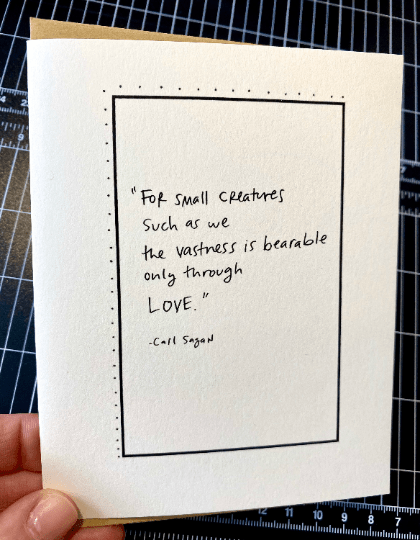 "FOR small creatures
such as we
the vastness is bearable
only through
LOVE."
-Carl Sagan
12 11 10 9 8 7